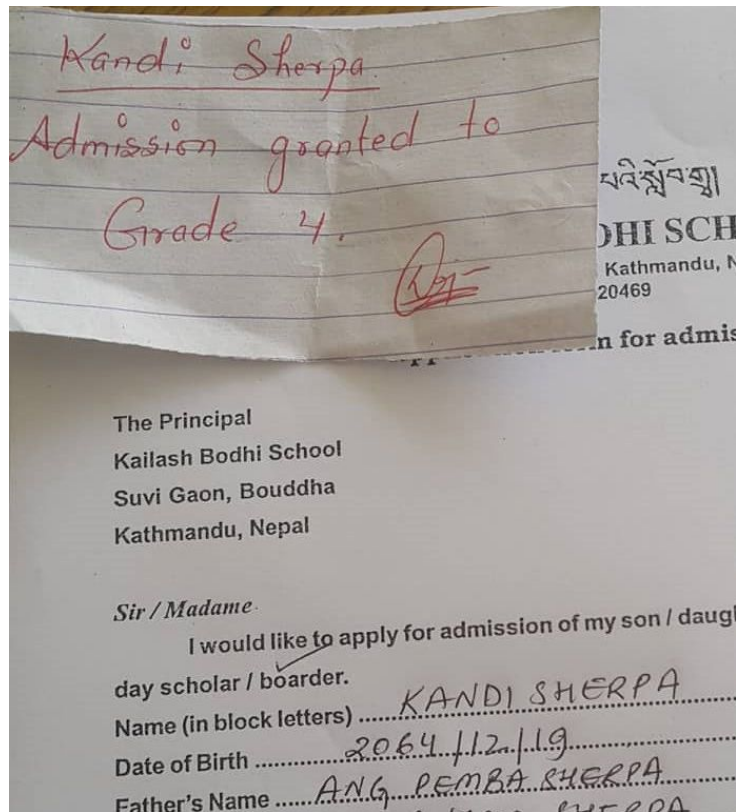 Kandi Sherpa
Admission granted to
Grade 4.
པའི་སློབ་གྲྭ།
DHI SCH
Kathmandu, N
20469
n for admis
The Principal
Kailash Bodhi School
Suvi Gaon, Bouddha
Kathmandu, Nepal
Sir / Madame
I would like to apply for admission of my son / daugh
day scholar / boarder.
Name (in block letters) KANDI SHERPA
Date of Birth 2064/12/19
Father's Name ANG PEMBA SHERPA
SHERPA